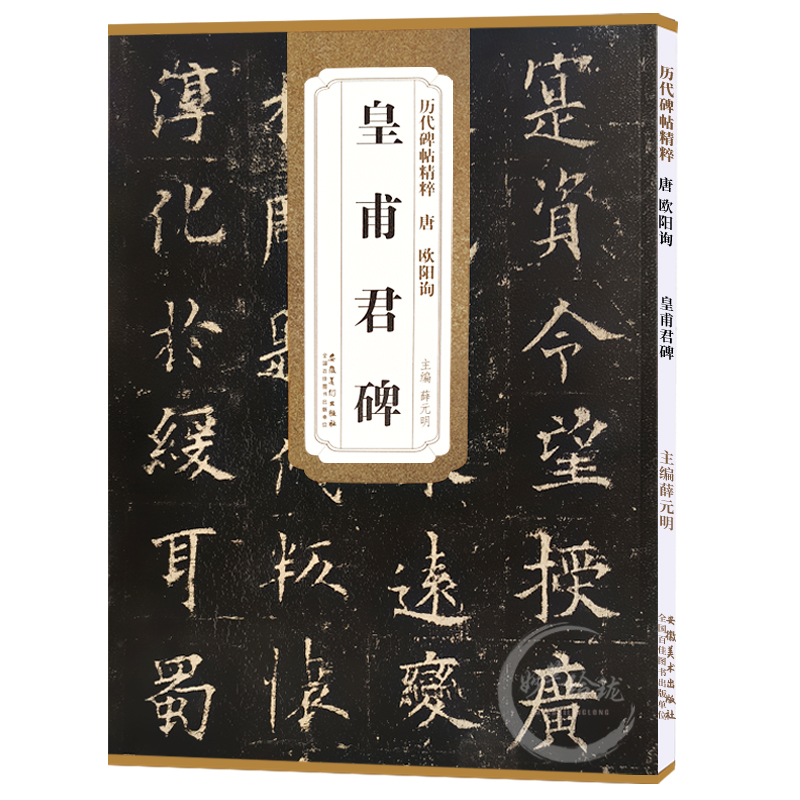 寔資令望授廣
遠變
版懷
化於緩耳蜀
历代碑帖精粹 唐 欧阳询
皇甫君碑
主编 薛元明
安徽美术出版社
全国百佳图书出版单位
历代碑帖精粹 唐 欧阳询 皇甫君碑 主编薛元明
安徽美术出版社
全国百佳图书出版单位